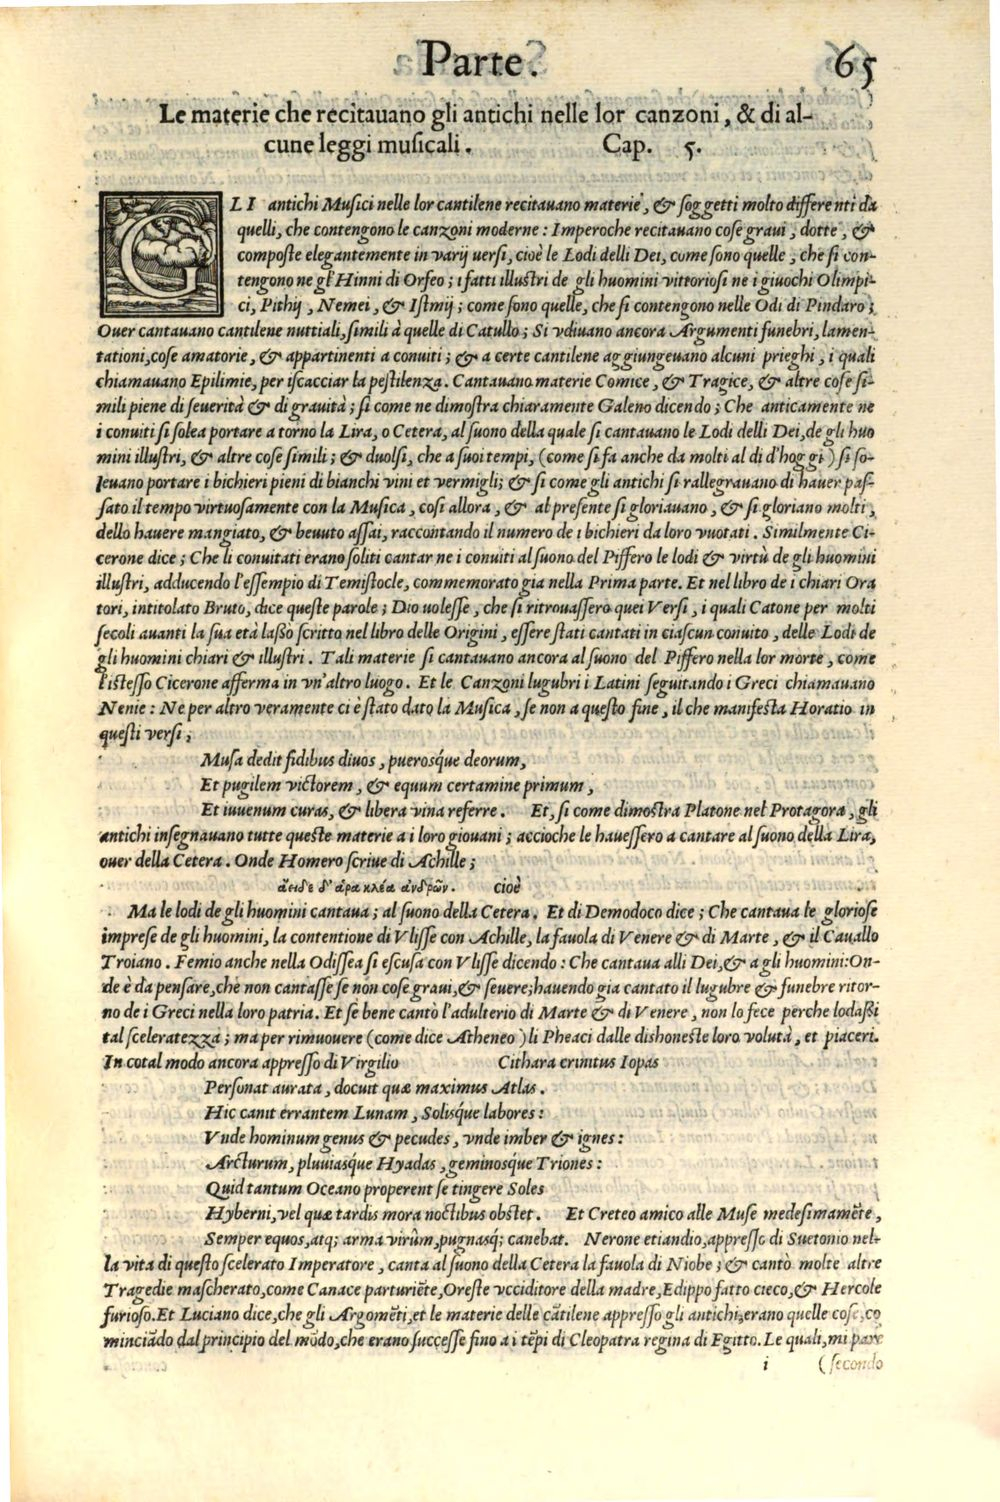 Parte. 65
Le materie che recitauano gli antichi nelle lor canzoni, & di al-
cune leggi musicali. Cap. 5.
GLI antichi Musici nelle lor cantilene recitauano materie, & soggetti molto differenti da
quelli, che contengono le canzoni moderne: Imperoche recitauano cose graui, dotte, &
composte elegantemente in varij uersi, cioè le Lodi delli Dei, come sono quelle, che si con-
tengono ne gl'Hinni di Orfeo; i fatti illustri de gli huomini vittoriosi ne i giuochi Olimpi-
ci, Pithij, Nemei, & Istmij; come sono quelle, che si contengono nelle Odi di Pindaro;
Ouer cantauano cantilene nuttiali, simili à quelle di Catullo; Si vdiuano ancora Argumenti funebri, lamen-
tationi, cose amatorie, & appartinenti a conuiti; & a certe cantilene aggiungeuano alcuni prieghi, i quali
chiamauano Epilimie, per iscacciar la pestilenza. Cantauano materie Comice, & Tragice, & altre cose si-
mili piene di seuerità & di grauità; si come ne dimostra chiaramente Galeno dicendo; Che anticamente ne
i conuiti si solea portare a torno la Lira, o Cetera, al suono della quale si cantauano le Lodi delli Dei, de gli huo
mini illustri, & altre cose simili; & duolsi, che a suoi tempi, (come si fa anche da molti al di d'hoggi) si so-
leuano portare i bichieri pieni di bianchi vini et vermigli; & si come gli antichi si rallegrauano di hauer pas-
sato il tempo virtuosamente con la Musica, cosi allora, & al presente si gloriauano, & si gloriano molti,
dello hauere mangiato, & beuuto assai, raccontando il numero de i bichieri da loro vuotati. Similmente Ci-
cerone dice; Che li conuitati erano soliti cantar ne i conuiti al suono del Piffero le lodi & virtù de gli huomini
illustri, adducendo l'essempio di Temistocle, commemorato gia nella Prima parte. Et nel libro de i chiari Ora
tori, intitolato Bruto, dice queste parole; Dio uolesse, che si ritrouassero quei Versi, i quali Catone per molti
secoli auanti la sua età lasso scritto nel libro delle Origini, essere stati cantati in ciascun conuito, delle Lodi de
gli huomini chiari & illustri. Tali materie si cantauano ancora al suono del Piffero nella lor morte, come
l'istesso Cicerone afferma in vn'altro luogo. Et le Canzoni lugubri i Latini seguitando i Greci chiamauano
Nenie: Ne per altro veramente ci è stato dato la Musica, se non a questo fine, il che manifesta Horatio in
questi versi;
Musa dedit fidibus diuos, puerosque deorum,
Et pugilem victorem, & equum certamine primum,
Et iuuenum curas, & libera vina referre. Et, si come dimostra Platone nel Protagora, gli
antichi insegnauano tutte queste materie a i loro giouani; accioche le hauessero a cantare al suono della Lira,
ouer della Cetera. Onde Homero scriue di Achille;
ἀειδε δ' ἀρα κλέα ἀνδρῶν. cioè
Ma le lodi de gli huomini cantaua; al suono della Cetera. Et di Demodoco dice; Che cantaua le gloriose
imprese de gli huomini, la contentione di Vlisse con Achille, la fauola di Venere & di Marte, & il Cauallo
Troiano. Femio anche nella Odissea si escusa con Vlisse dicendo: Che cantaua alli Dei, & a gli huomini: On-
de è da pensare, che non cantasse se non cose graui, & seuere; hauendo gia cantato il lugubre & funebre ritor-
no de i Greci nella loro patria. Et se bene cantò l'adulterio di Marte & di Venere, non lo fece perche lodassi
tal sceleratezza; ma per rimuouere (come dice Atheneo) li Pheaci dalle dishoneste loro volutà, et piaceri.
In cotal modo ancora appresso di Virgilio Cithara crinitus Iopas
Personat aurata, docuit quæ maximus Atlas.
Hic canit errantem Lunam, Solisque labores:
Vnde hominum genus & pecudes, vnde imber & ignes:
Arcturum, pluuiasque Hyadas, geminosque Triones:
Quid tantum Oceano properent se tingere Soles
Hyberni, vel quæ tardis mora noctibus obstet. Et Creteo amico alle Muse medesimamẽte,
Semper equos, atq; arma virûm, pugnasq; canebat. Nerone etiandio, appresso di Suetonio nel-
la vita di questo scelerato Imperatore, canta al suono della Cetera la fauola di Niobe; & cantò molte altre
Tragedie mascherato, come Canace parturiẽte, Oreste vcciditore della madre, Edippo fatto cieco, & Hercole
furioso. Et Luciano dice, che gli Argomẽti, et le materie delle cãtilene appresso gli antichi, erano quelle cose, co
minciãdo dal principio del mõdo, che erano successe fino a i tẽpi di Cleopatra regina di Egitto. Le quali, mi pare
i (secondo